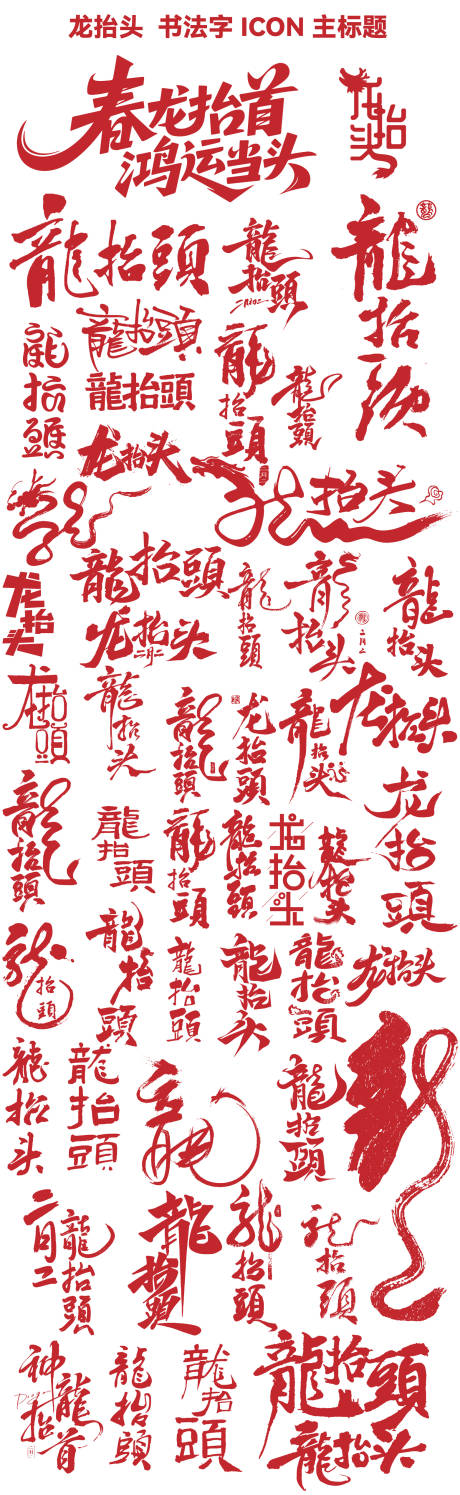 龙抬头 书法字 ICON 主标题
春龙抬首
鸿运当头
龙抬头
龍抬頭
龍抬頭
二月初二
龍抬頭
龍抬頭
龍抬頭
龍抬頭
龍抬頭
龍抬頭
龙抬头
龙抬头
龍抬頭
龙抬头
龙抬头
二月二
龍抬頭
龍抬头
二月二
龍抬头
龙抬頭
龍抬头
龍抬頭
龙抬頭
龍抬头
龙抬头
龍抬頭
龍抬頭
龍抬頭
龍抬頭
龙抬头
龍抬头
龙抬頭
龙抬頭
龍抬頭
龍抬頭
龍抬头
龍抬頭
龙抬头
龍抬头
龍抬頭
龍
龍抬頭
龙
二月二
龍抬頭
龍抬頭
龍抬頭
龙抬頭
神龍抬首
龍抬頭
龍抬頭
龍抬頭
龍抬头